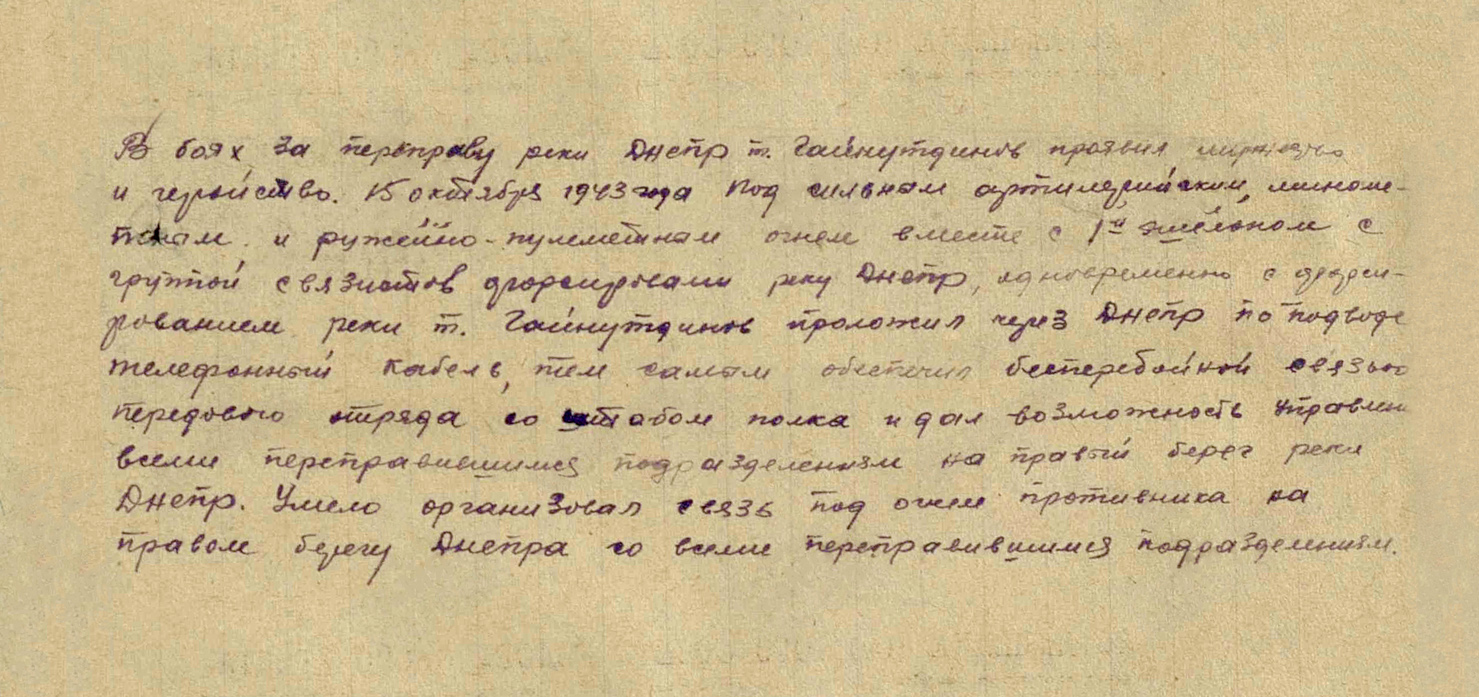 В боях за переправу реки Днепр т. Гайнутдинов проявил мужество
и геройство. 15 октября 1943 года под сильным артилерийским, миноме-
тным и ружейно-пулеметным огнем вместе с 1й эшелоном с
группой связистов форсировали реку Днепр, одновременно с форси-
рованием реки т. Гайнутдинов проложил через Днепр по подводе
телефонный кабель, тем самым обеспечил бесперебойной связью
передового отряда со штабом полка и дал возможность управлен
всеми переправившимся подразделениям на правый берег реки
Днепр. Умело организовал связь под огнем противника на
правом берегу Днепра со всеми переправившимся подразделениям.